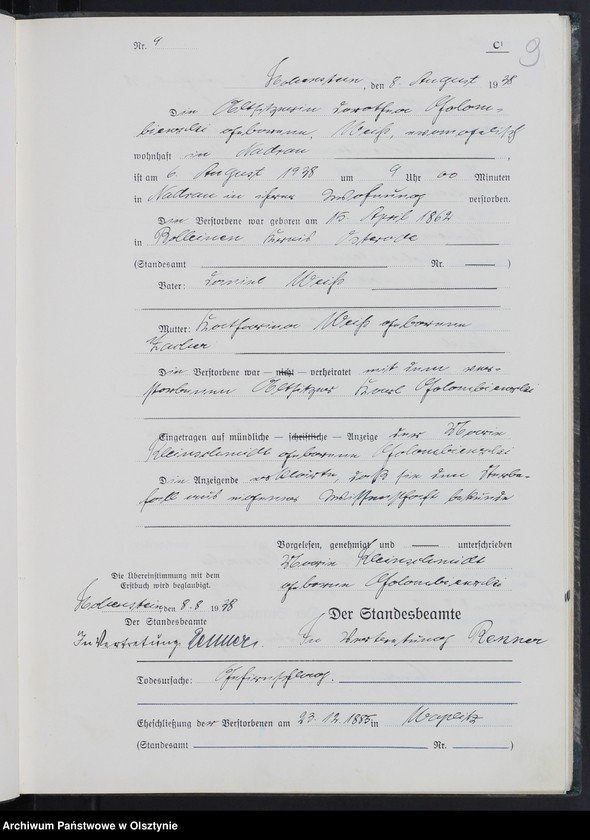 Nr. 9
C¹
9
Hohenstein, den 8. August 1938
Die Altsitzerin Dorothea Golom-
bienzki geborene Weiß, evangelisch
wohnhaft in Nadrau,
ist am 6. August 1938 um 9 Uhr 00 Minuten
in Nadrau in ihrer Wohnung verstorben.
Die Verstorbene war geboren am 15. April 1862
in Kreis Osterode
(Standesamt Nr. )
Vater: Daniel Weiß
Mutter: Katharina Weiß geborene
Die Verstorbene war — nicht — verheiratet mit dem ver-
storbenen Altsitzer Karl Golombienzki
Eingetragen auf mündliche — schriftliche — Anzeige der Marie
Kleinschmidt geborene Golombienzki
Die Anzeigende erklärte, daß sie den Sterbe-
fall aus eigener Wissenschaft bekunde
Vorgelesen, genehmigt und unterschrieben
Marie Kleinschmidt
geborene Golombienzki
Die Übereinstimmung mit dem
Erstbuch wird beglaubigt.
Hohenstein, den 8.8. 1938
Der Standesbeamte
In Vertretung. Renner.
Der Standesbeamte
In Vertretung Renner
Todesursache: Gehirnschlag.
Eheschließung der Verstorbenen am 23.12.1885 in
(Standesamt Nr. )
Archiwum Państwowe w Olsztynie